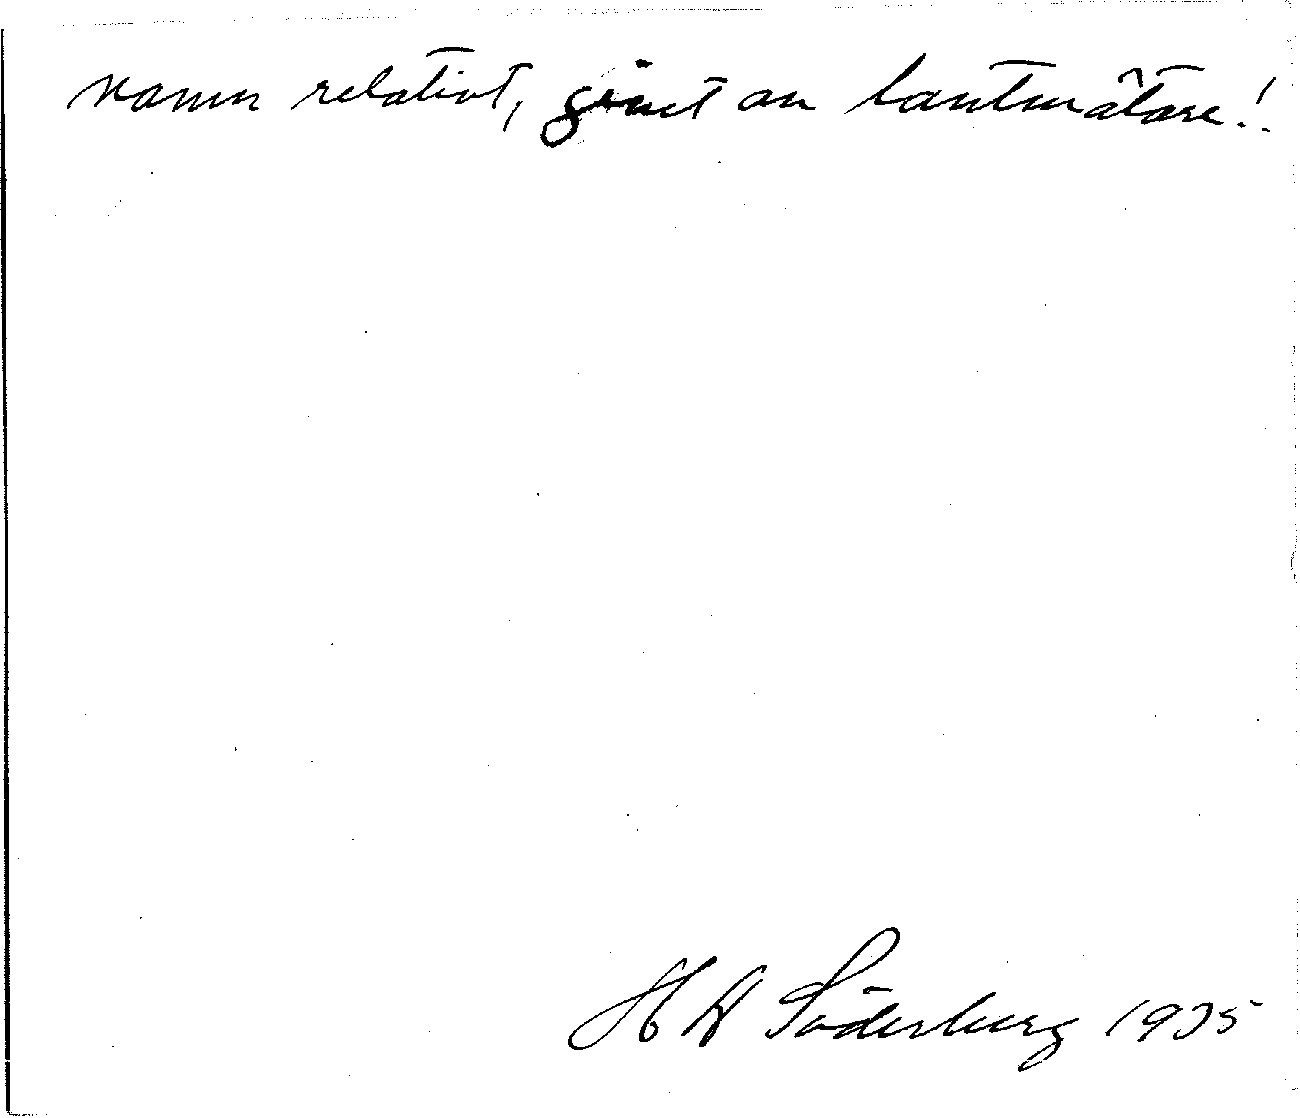 namn relativt, givet av lantmätare!
H W Söderberg 1935